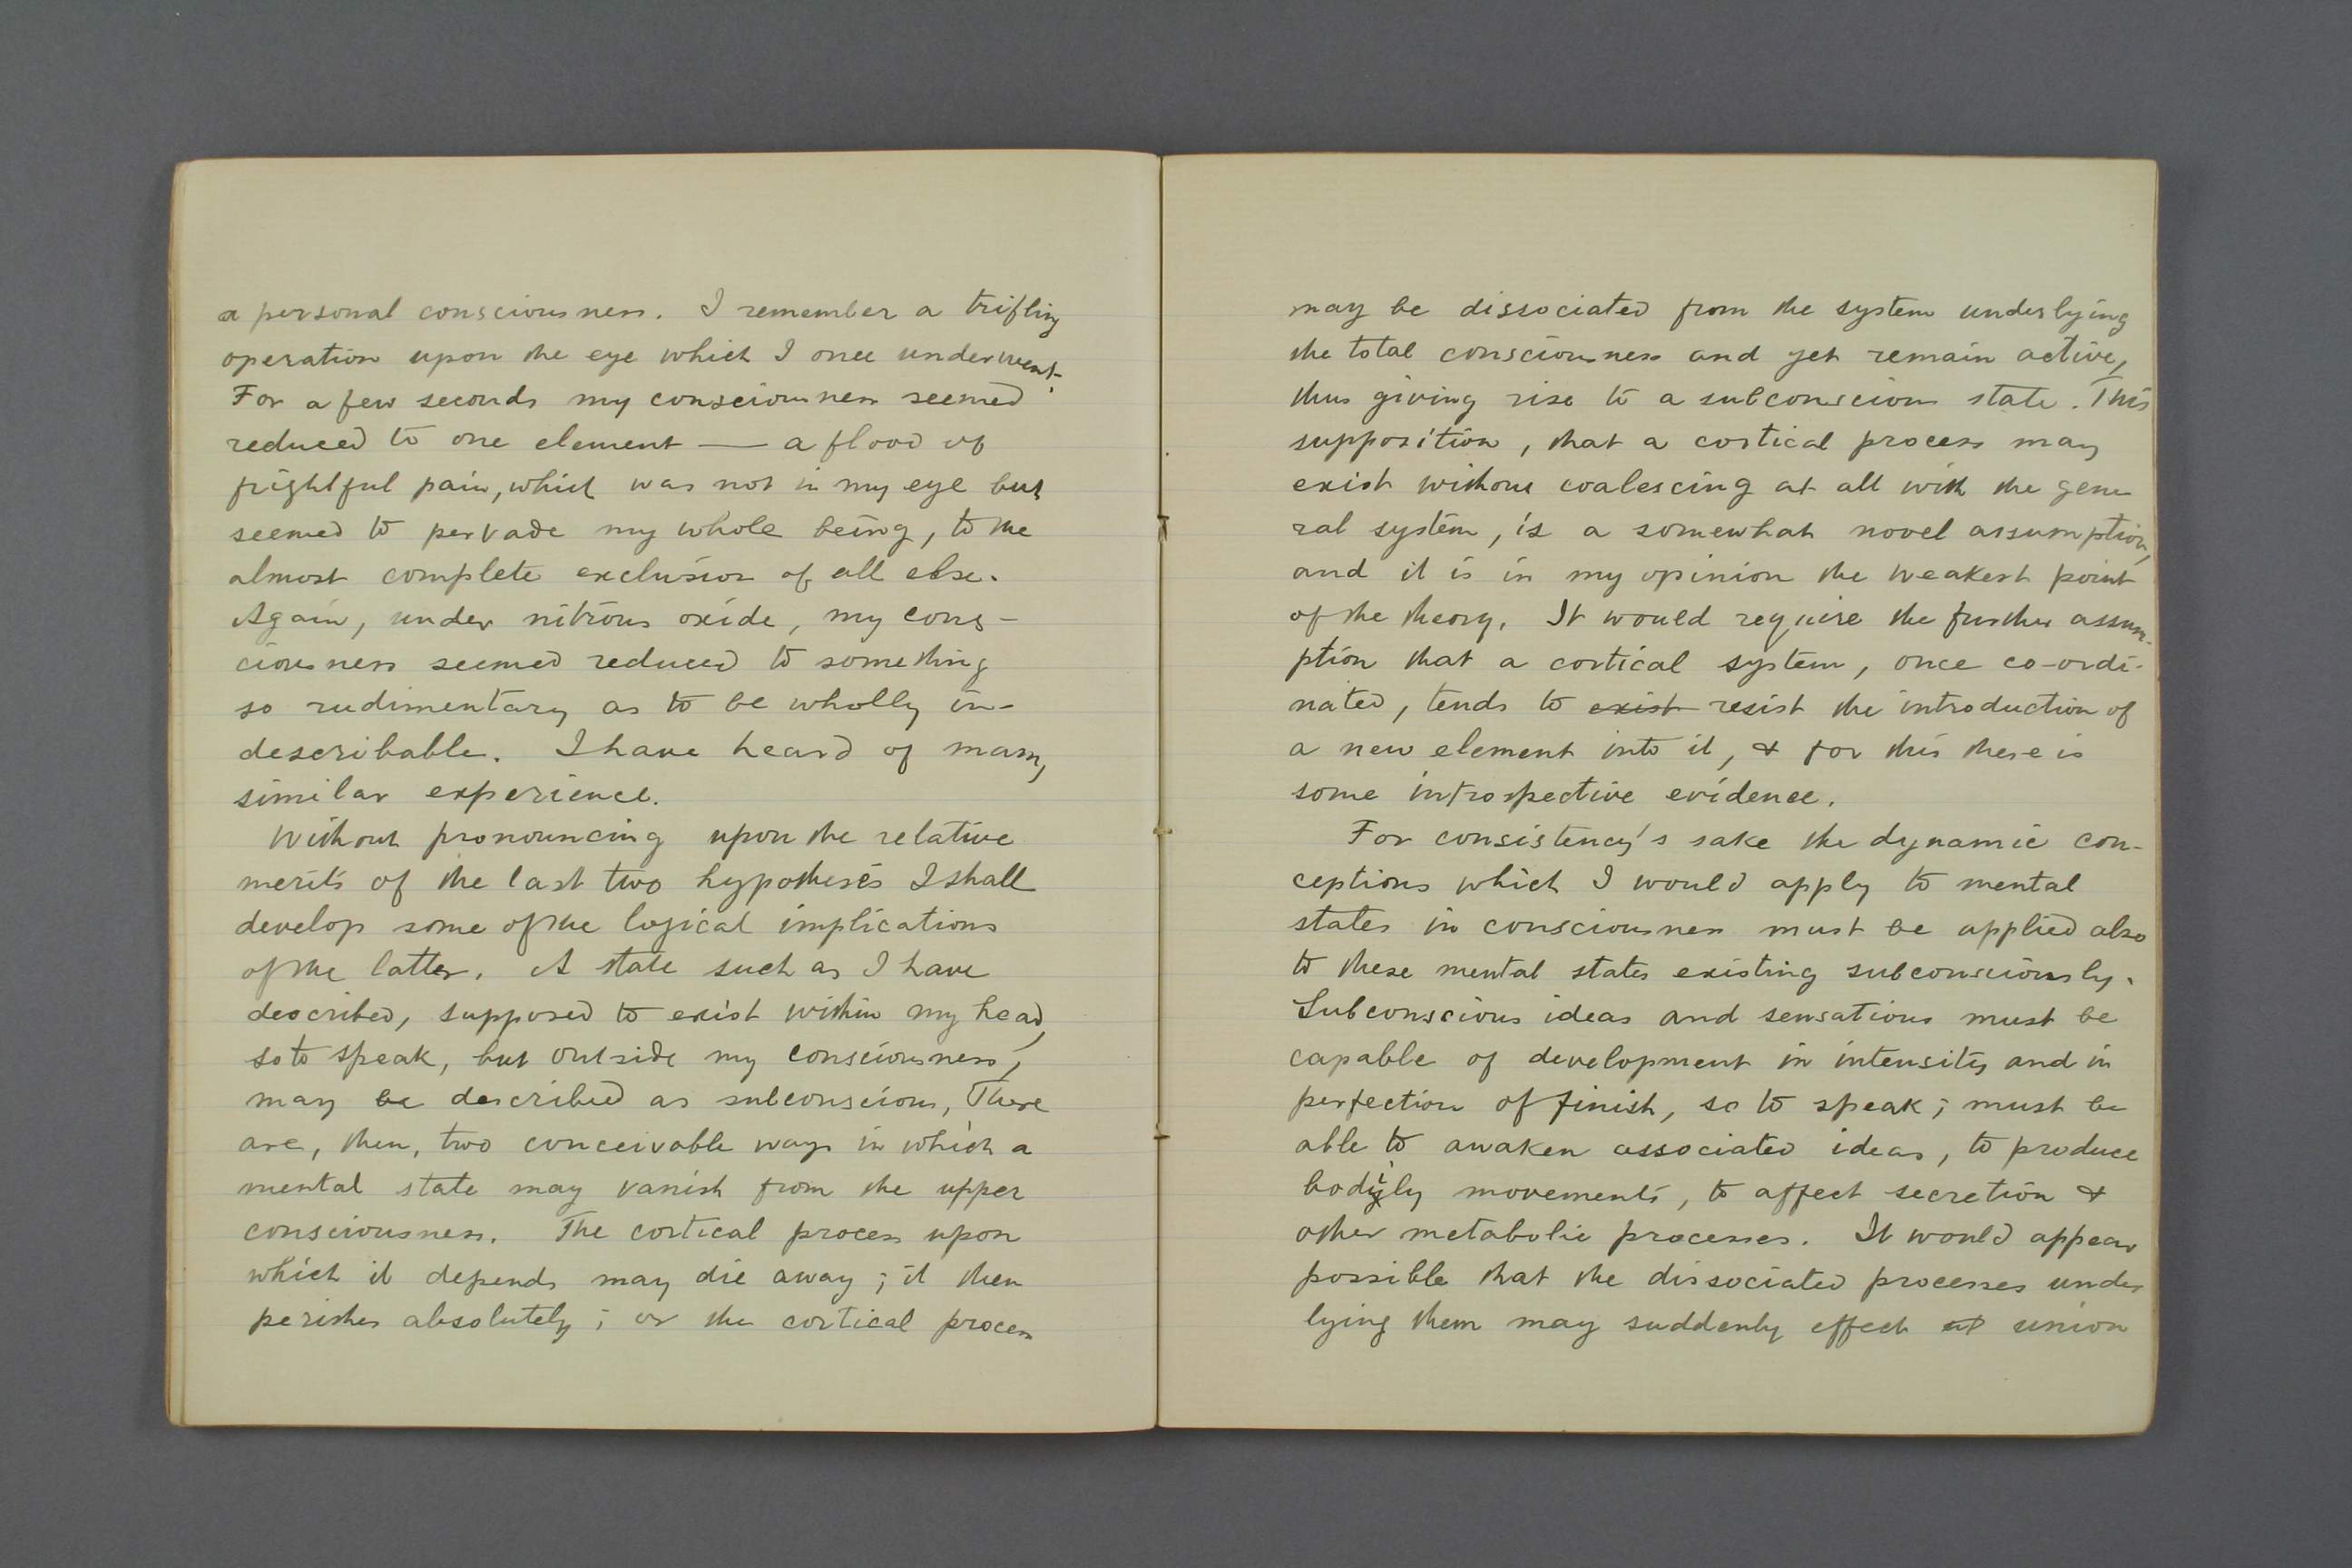 a personal consciousness. I remember a trifling
operation upon the eye which I once underwent.
For a few seconds my consciousness seemed
reduced to one element — a flood of
frightful pain, which was not in my eye but
seemed to pervade my whole being, to the
almost complete exclusion of all else.
Again, under nitrous oxide, my cons-
ciousness seemed reduced to something
so rudimentary as to be wholly in-
describable. I have heard of many
similar experience.
Without pronouncing upon the relative
merits of the last two hypotheses I shall
develop some of the logical implications
of the latter. A state such as I have
described, supposed to exist within my head,
so to speak, but outside my consciousness,
may be described as subconscious, There
are, then, two conceivable ways in which a
mental state may vanish from the upper
consciousness. The cortical process upon
which it depends may die away; it then
perishes absolutely; or the cortical process
may be dissociated from the system underlying
the total consciousness and yet remain active,
thus giving rise to a subconscious state. This
supposition, that a cortical process may
exist without coalescing at all with the gene
ral system, is a somewhat novel assumption,
and it is in my opinion the weakest point
of the theory. It would require the further assum-
ption that a cortical system, once co-ordi-
nated, tends to exist resist the introduction of
a new element into it, & for this there is
some introspective evidence.
For consistency's sake the dynamic con-
ceptions which I would apply to mental
states in consciousness must be applied also
to these mental states existing subconsciously.
Subconscious ideas and sensations must be
capable of development in intensity and in
perfection of finish, so to speak; must be
able to awaken associated ideas, to produce
bodily movements, to affect secretion &
other metabolic processes. It would appear
possible that the dissociated processes under
lying them may suddenly effect union